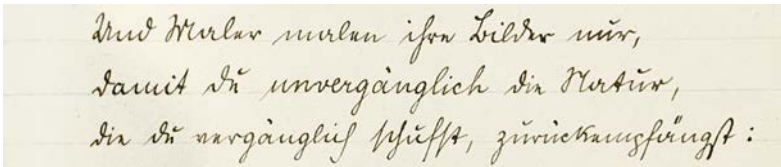 Und Maler malen ihre Bilder nur,
damit du unvergänglich die Natur,
die du vergänglich schufst, zurückempfängst: